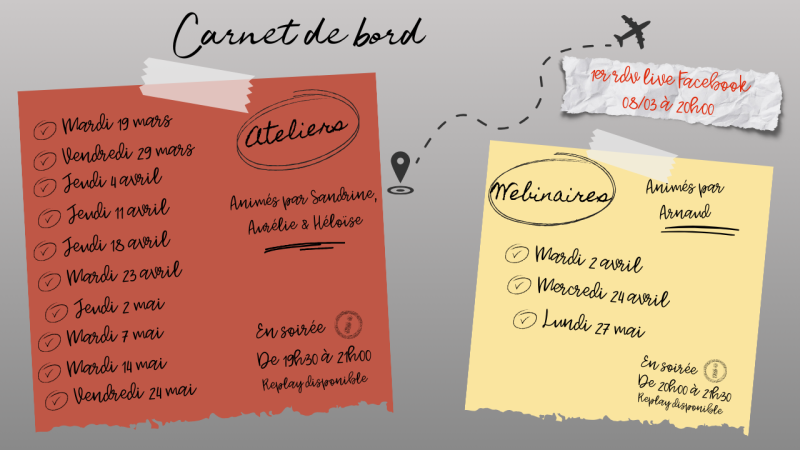 Carnet de bord
1er rdv live Facebook
08/03 à 20h00
Ateliers
Animés par Sandrine,
Aurélie & Héloïse
Mardi 19 mars
Vendredi 29 mars
Jeudi 4 avril
Jeudi 11 avril
Jeudi 18 avril
Mardi 23 avril
Jeudi 2 mai
Mardi 7 mai
Mardi 14 mai
Vendredi 24 mai
En soirée
De 19h30 à 21h00
Replay disponible
Webinaires
Animés par
Arnaud
Mardi 2 avril
Mercredi 24 avril
Lundi 27 mai
En soirée
De 20h00 à 21h30
Replay disponible